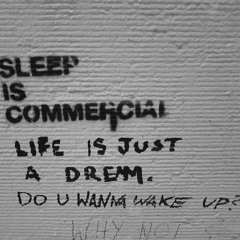 SLEEP
IS
COMMERCIAL
LIFE IS JUST
A DREAM.
DO U WANNA WAKE UP?
WHY NOT